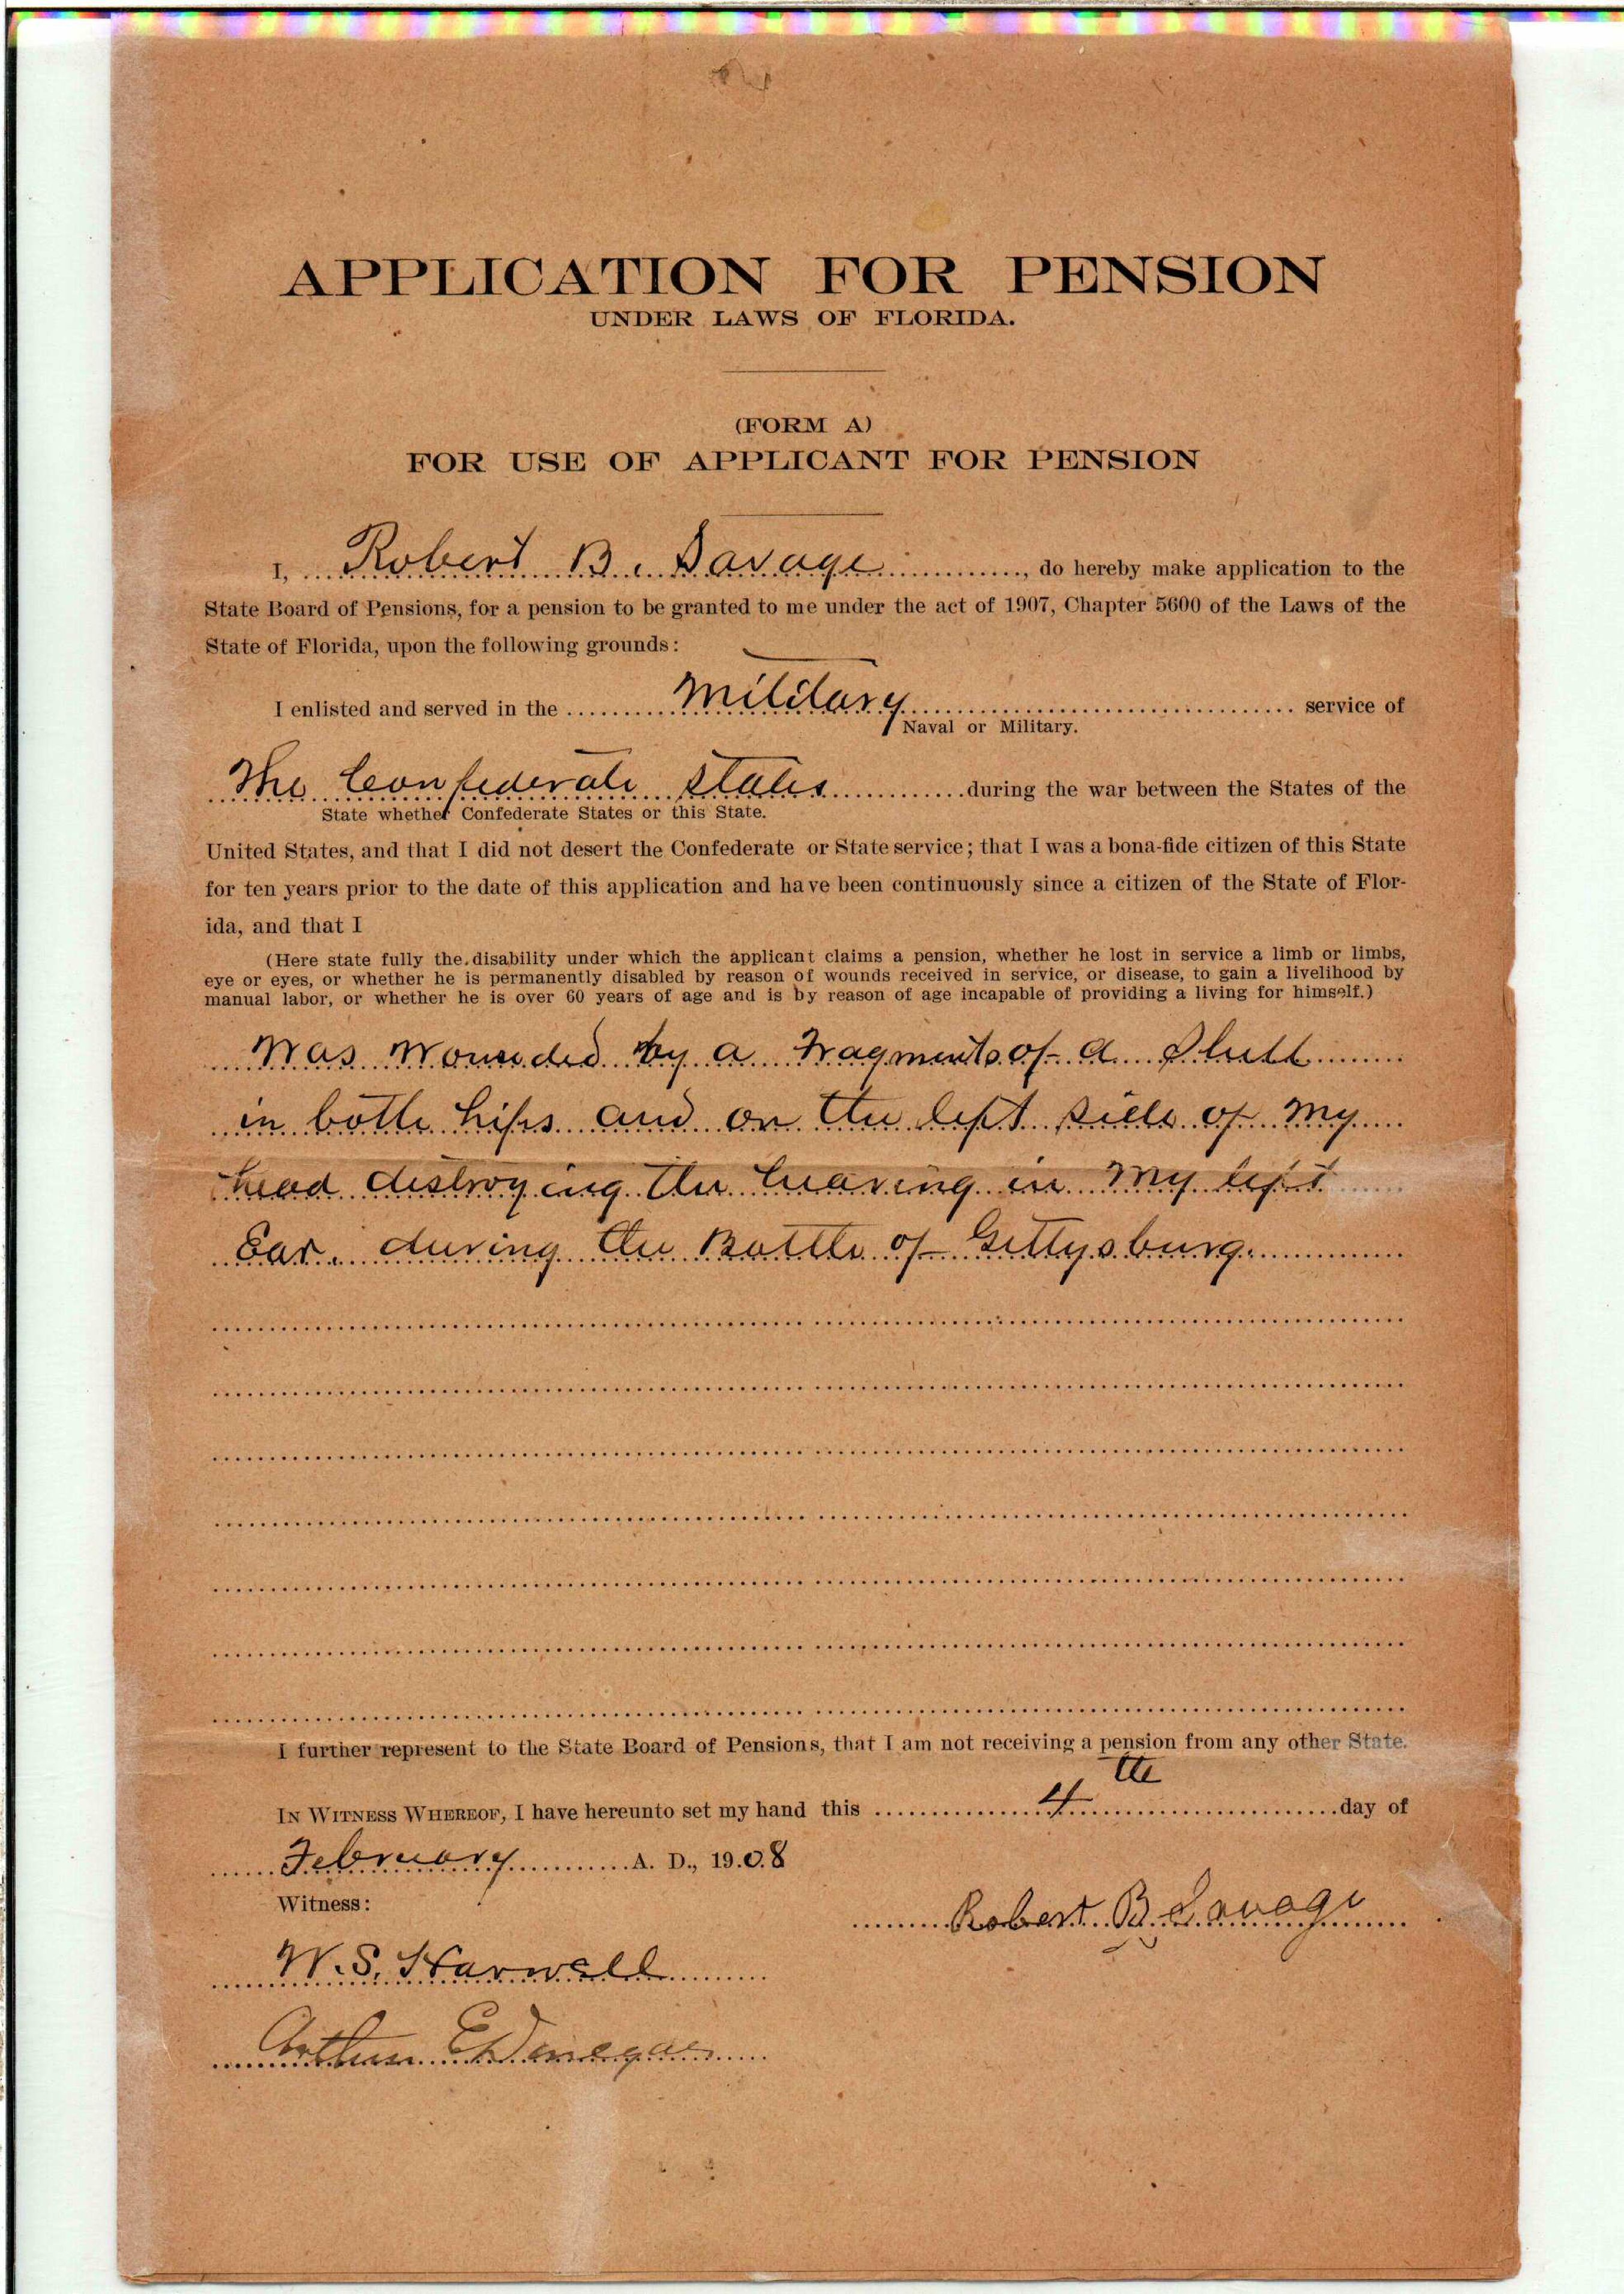 APPLICATION FOR PENSION
UNDER LAWS OF FLORIDA.
(FORM A)
FOR USE OF APPLICANT FOR PENSION
I, Robert B. Savage, do hereby make application to the
State Board of Pensions, for a pension to be granted to me under the act of 1907, Chapter 5600 of the Laws of the
State of Florida, upon the following grounds:
I enlisted and served in the Military service of
Naval or Military.
The Confederate States during the war between the States of the
State whether Confederate States or this State.
United States, and that I did not desert the Confederate or State service; that I was a bona-fide citizen of this State
for ten years prior to the date of this application and have been continuously since a citizen of the State of Flor-
ida, and that I
(Here state fully the disability under which the applicant claims a pension, whether he lost in service a limb or limbs,
eye or eyes, or whether he is permanently disabled by reason of wounds received in service, or disease, to gain a livelihood by
manual labor, or whether he is over 60 years of age and is by reason of age incapable of providing a living for himself.)
Was Wounded by a Fragments of a Shell
in both hips and on the left side of My
head destroying the hearing in My left
Ear. during the Battle of Gettysburg.
I further represent to the State Board of Pensions, that I am not receiving a pension from any other State.
IN WITNESS WHEREOF, I have hereunto set my hand this 4th day of
February A. D., 1908
Witness:
Robert B Savage
W. S. Harwell
Arthur E